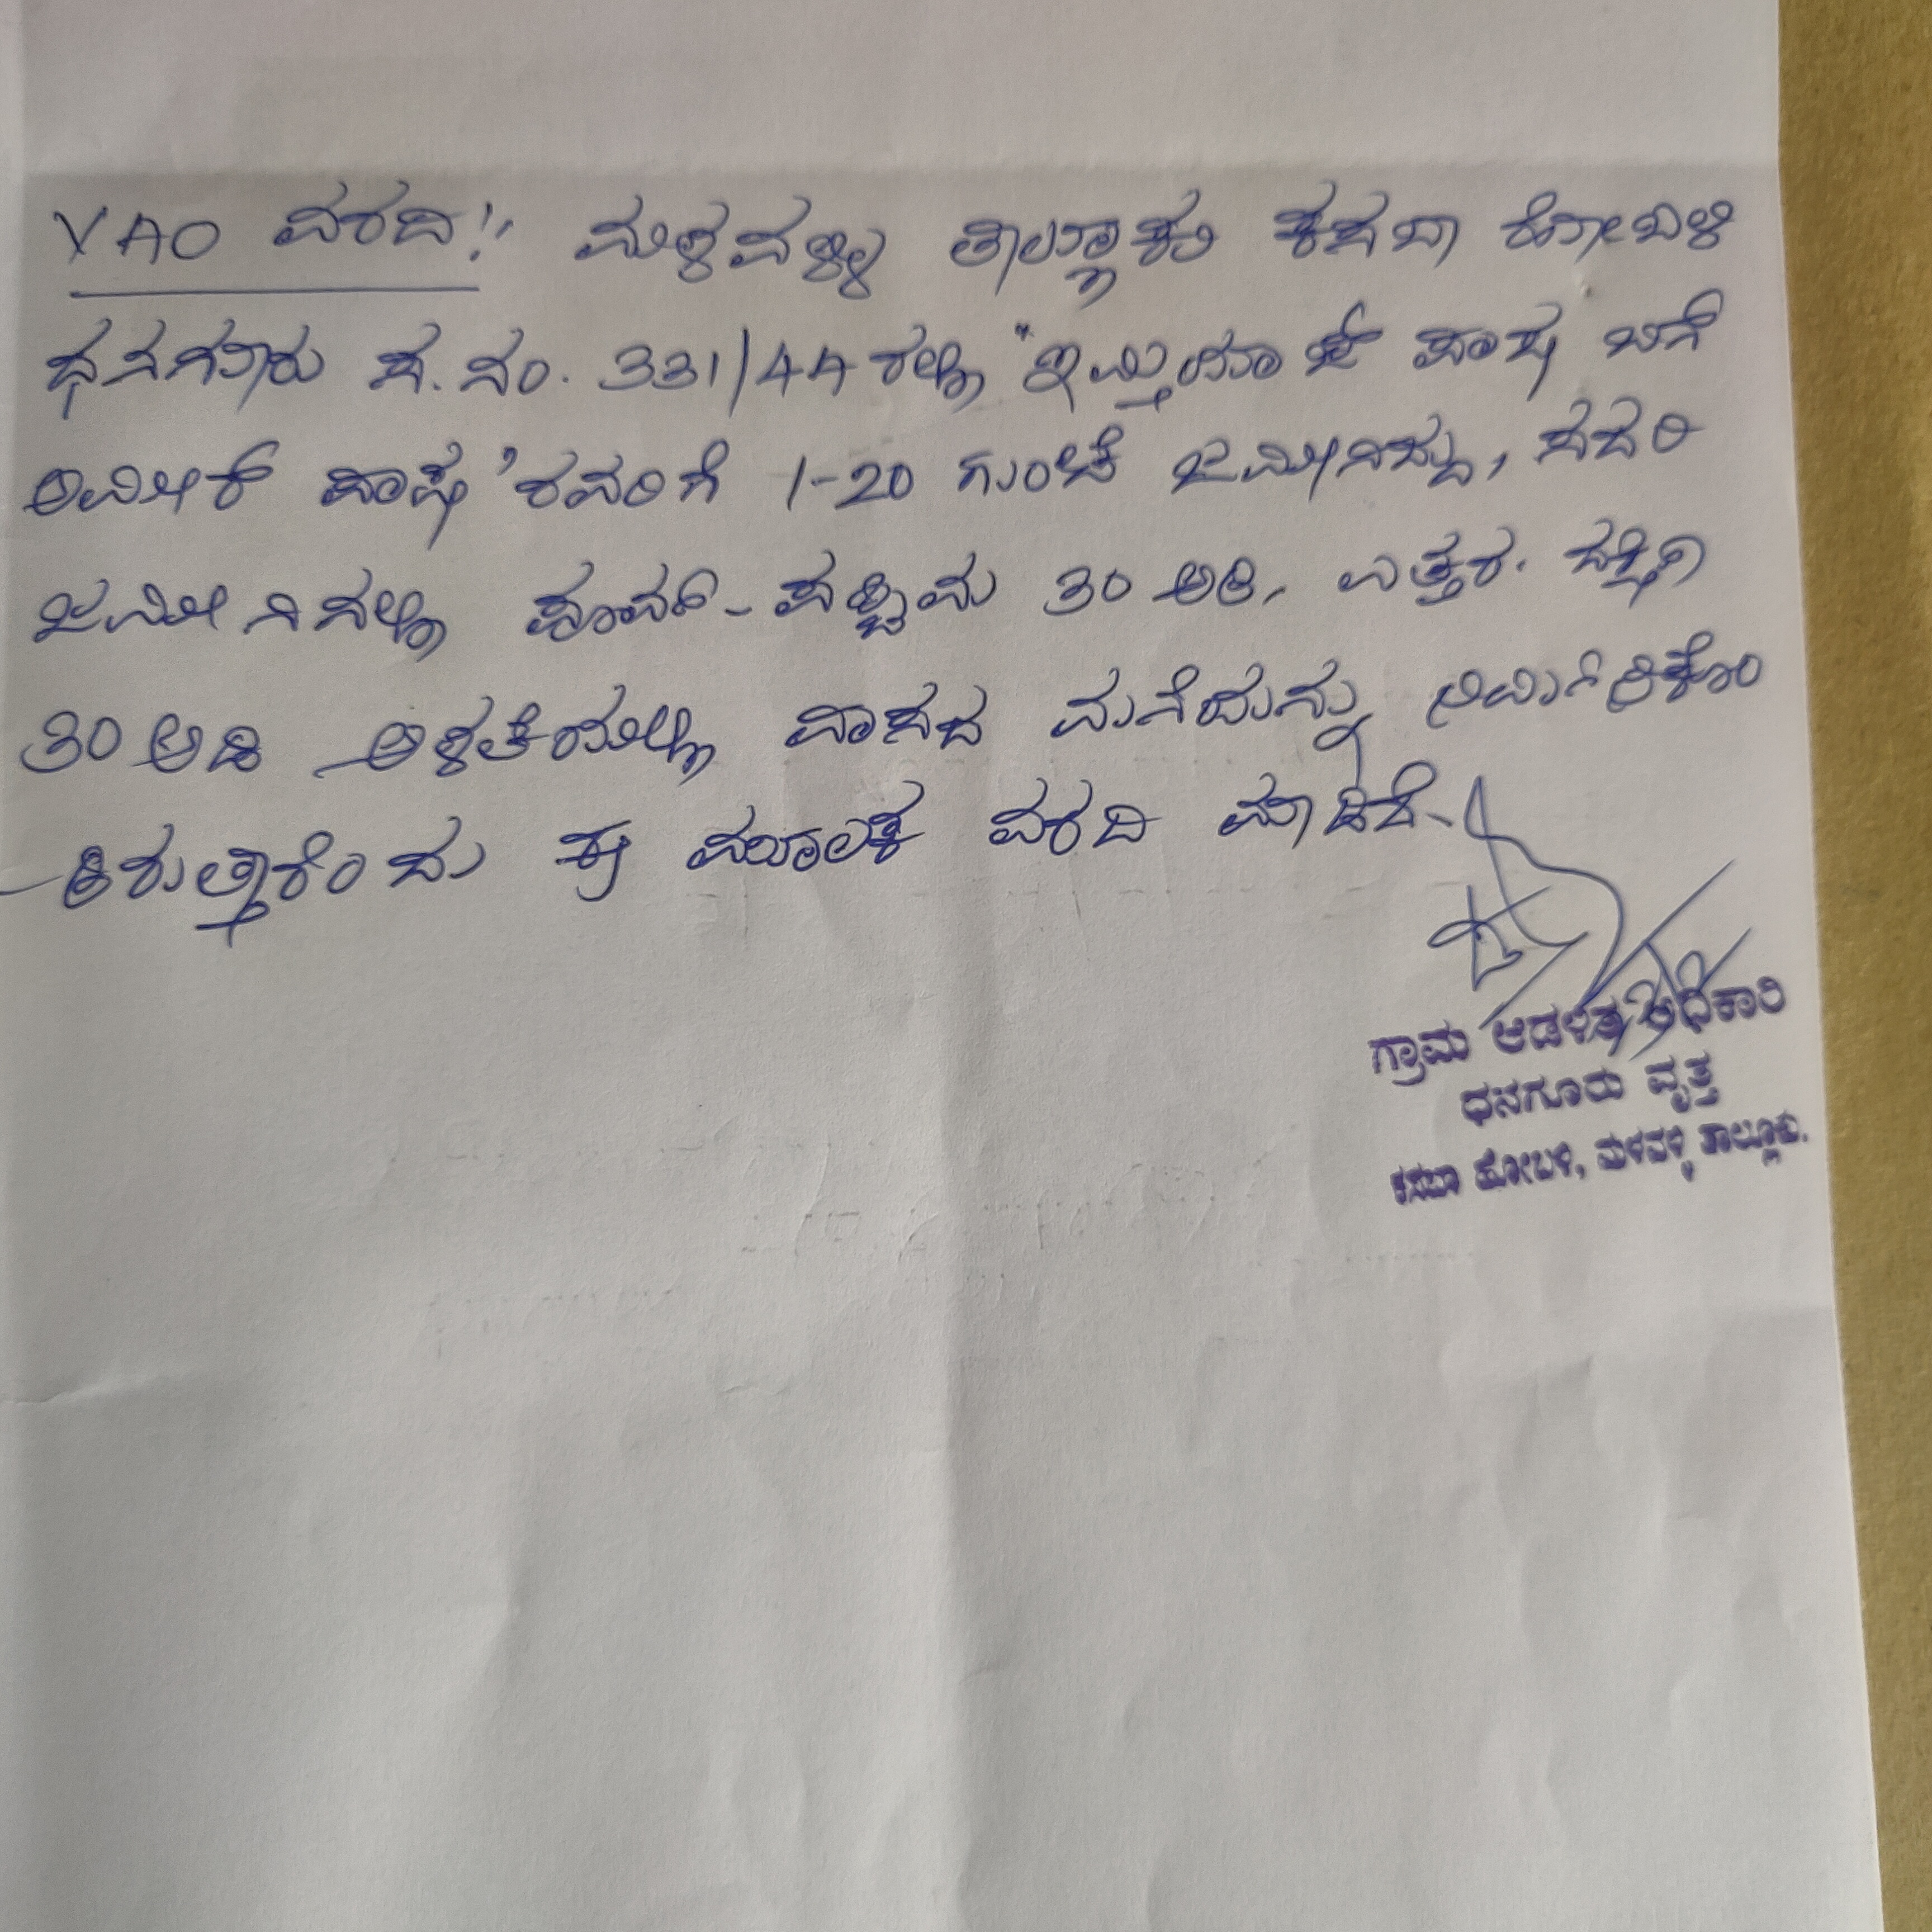 VAO ವರದಿ:- ಮಳವಳ್ಳಿ ತಾಲ್ಲೂಕು ಕಸಬಾ ಹೋಬಳಿ
ಧನಗೂರು ಸ.ನಂ. 331/44 ರಲ್ಲಿ "ಇಮ್ತಿಯಾಜ್ ಪಾಷ ಬಿನ್
ಅಮೀರ್ ಪಾಷ' ರವರಿಗೆ 1-20 ಗುಂಟೆ ಜಮೀನಿದ್ದು, ಸದರಿ
ಜಮೀನಿನಲ್ಲಿ ಪೂರ್ವ-ಪಶ್ಚಿಮ 30 ಅಡಿ, ಉತ್ತರ-ದಕ್ಷಿಣ
30 ಅಡಿ ಅಳತೆಯಲ್ಲಿ ವಾಸದ ಮನೆಯನ್ನು ನಿರ್ಮಿಸಿಕೊಂ
-ಡಿರುತ್ತಾರೆಂದು ಈ ಮೂಲಕ ವರದಿ ಮಾಡಿದೆ.
ಗ್ರಾಮ ಆಡಳಿತ ಅಧಿಕಾರಿ
ಧನಗೂರು ವೃತ್ತ
ಕಸಬಾ ಹೋಬಳಿ, ಮಳವಳ್ಳಿ ತಾಲ್ಲೂಕು.